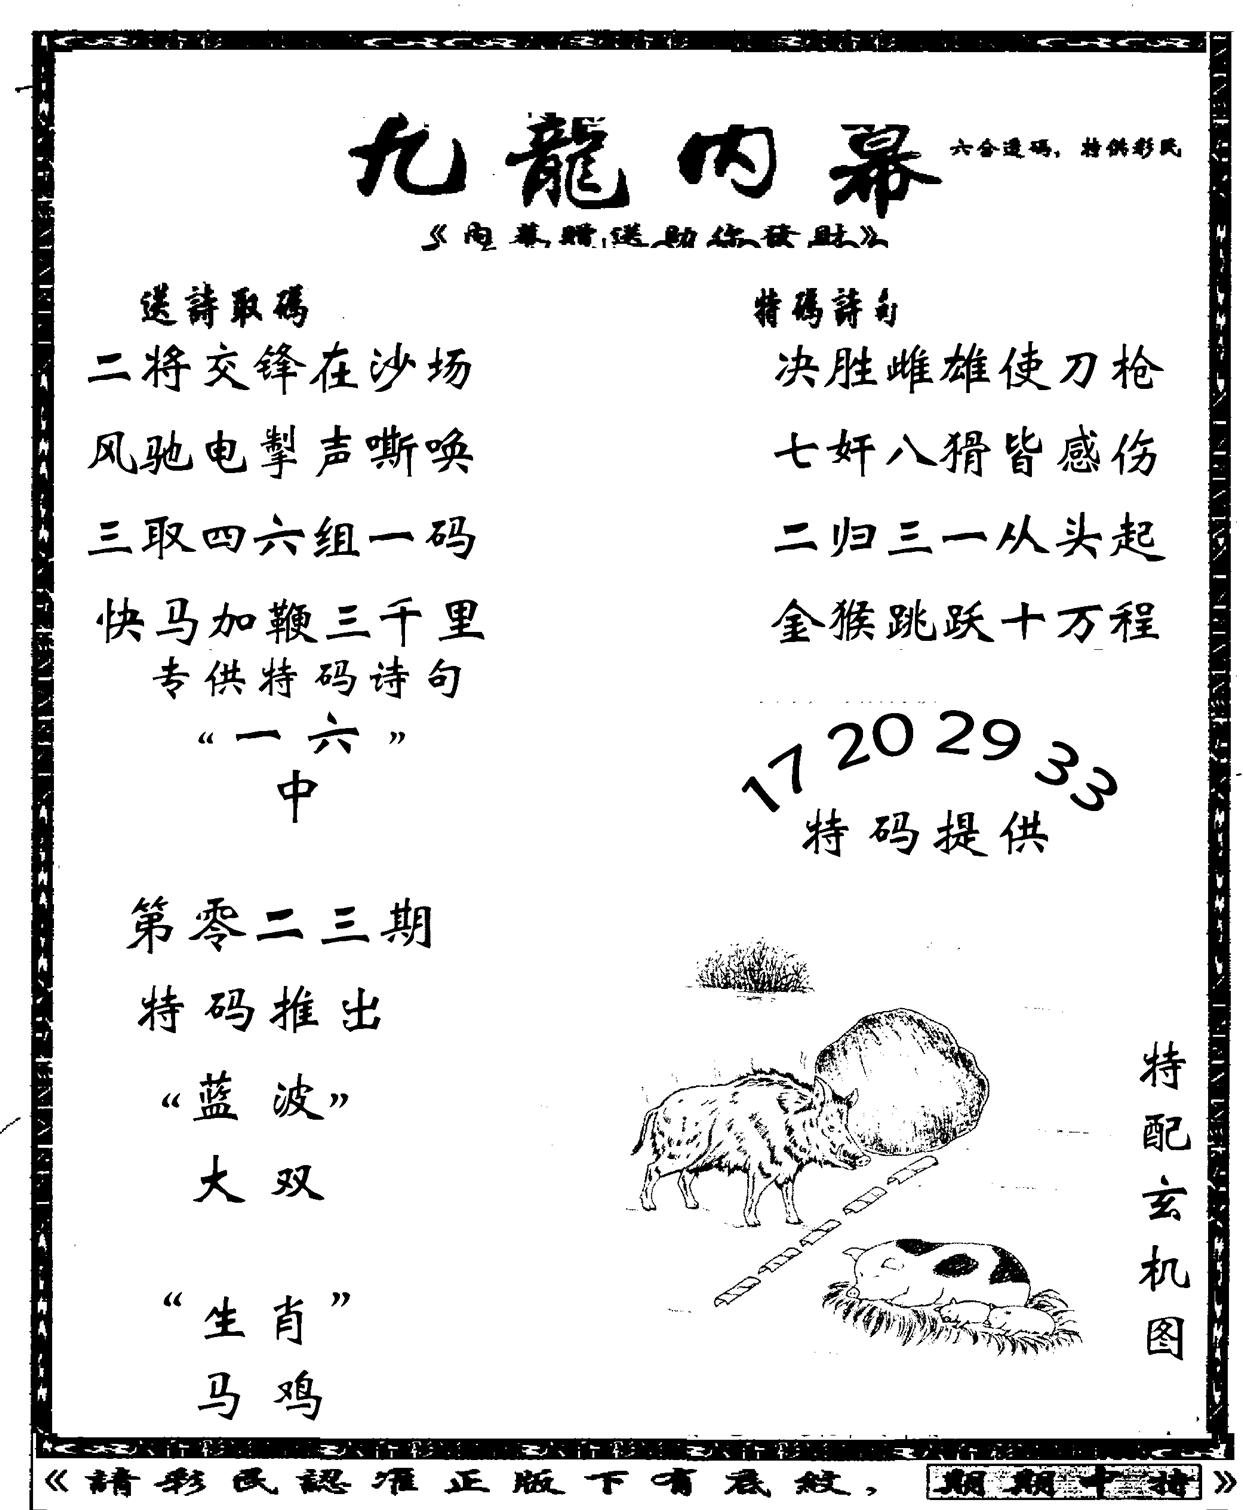 九龍内幕
六合透码，特供彩民
《内幕赠送助你發财》
送詩取碼
二将交锋在沙场
风驰电掣声嘶唤
三取四六组一码
快马加鞭三千里
专供特码诗句
“一六”
中
第零二三期
特码推出
“蓝波”
大双
“生肖”
马鸡
特碼詩句
决胜雌雄使刀枪
七奸八猾皆感伤
二归三一从头起
金猴跳跃十万程
17 20 29 33
特码提供
特配玄机图
《請彩民認准正版下有底紋，期期中特》